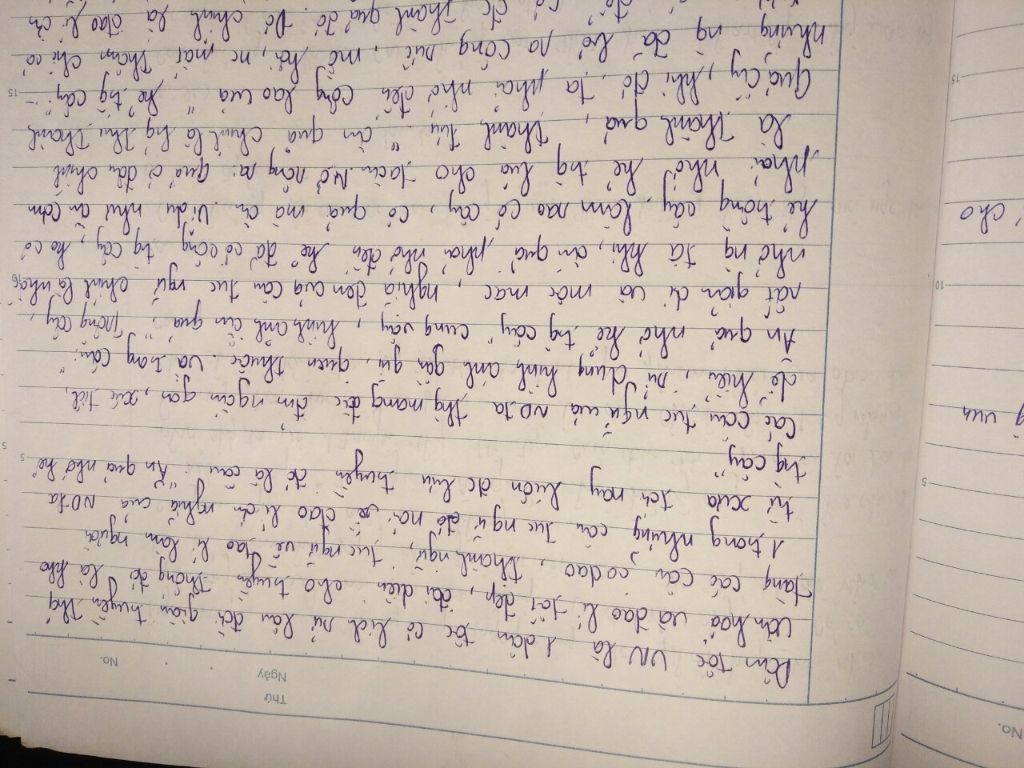 Thứ
Ngày
No.
Dân tộc VN là 1 dân tộc có lịch sử lâu đời, giàu truyền thg
văn hoá và đạo lí tốt đẹp, đại diện cho truyền thống đó là kho
tàng các câu ca dao, thành ngữ, tục ngữ về đạo lí làm người
1 trong những câu tục ngữ đó nói về đạo lí ơn nghĩa của ND ta
từ xưa tới nay luôn đc lưu truyền đó là câu: "Ăn quả nhớ kẻ
trg cây"
Các câu tục ngữ của ND ta thg mang đặc điểm ngắn gọn, xúc tích,
dễ hiểu, sử dụng hình ảnh gần gũi, quen thuộc. Và trong câu: "
Ăn quả nhớ kẻ trg cây" cũng vậy, hình ảnh "ăn quả", "trồng cây",
rất giản dị và mộc mạc, nghĩa đen của câu tục ngữ chính là nhắc
nhở ng ta khi ăn quả phải nhớ đến kẻ đã có công trg cây, ko có
kẻ trồng cây làm sao có cây, có quả mà ăn. Ví dụ như ăn cơm
phải nhớ kẻ trg lúa cho ta ăn. Mở rộng ra: quả ở đây chính
là thành quả, thành tựu. "ăn quả" chính là hg thụ thành
quả ấy, khi đó ta phải nhớ đến công lao của "kẻ trg cây":
những ng đã bỏ ra công sức, mồ hôi, nc mắt thậm chí có
5
10
15
cho
No.
5
10
15